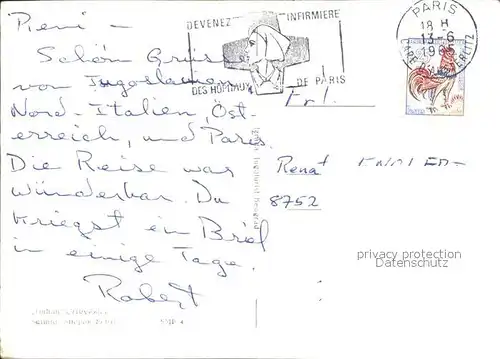 Reni —
Schön Grüsse
von Jugoslawien,
Nord-Italien, Öst-
erreich, und Paris.
Die Reise war
wünderbar. Du
kriegst ein Brief
in einige Tage.
Robert
DEVENEZ INFIRMIERE
DES HÔPITAUX DE PARIS
PARIS
18 H
13-6
1965
GARE
Frl.
Renat
8752
privacy protection
Datenschutz